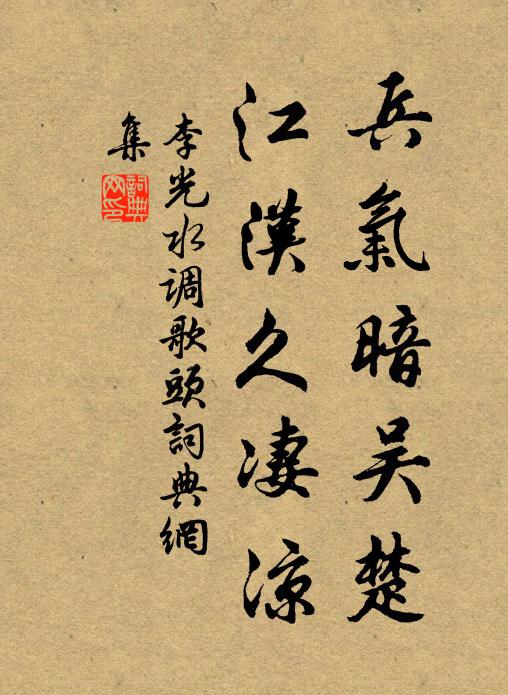 兵氣暗吴楚
江漢久凄涼
李光水调歌頭詞典網
集
詞典
网印